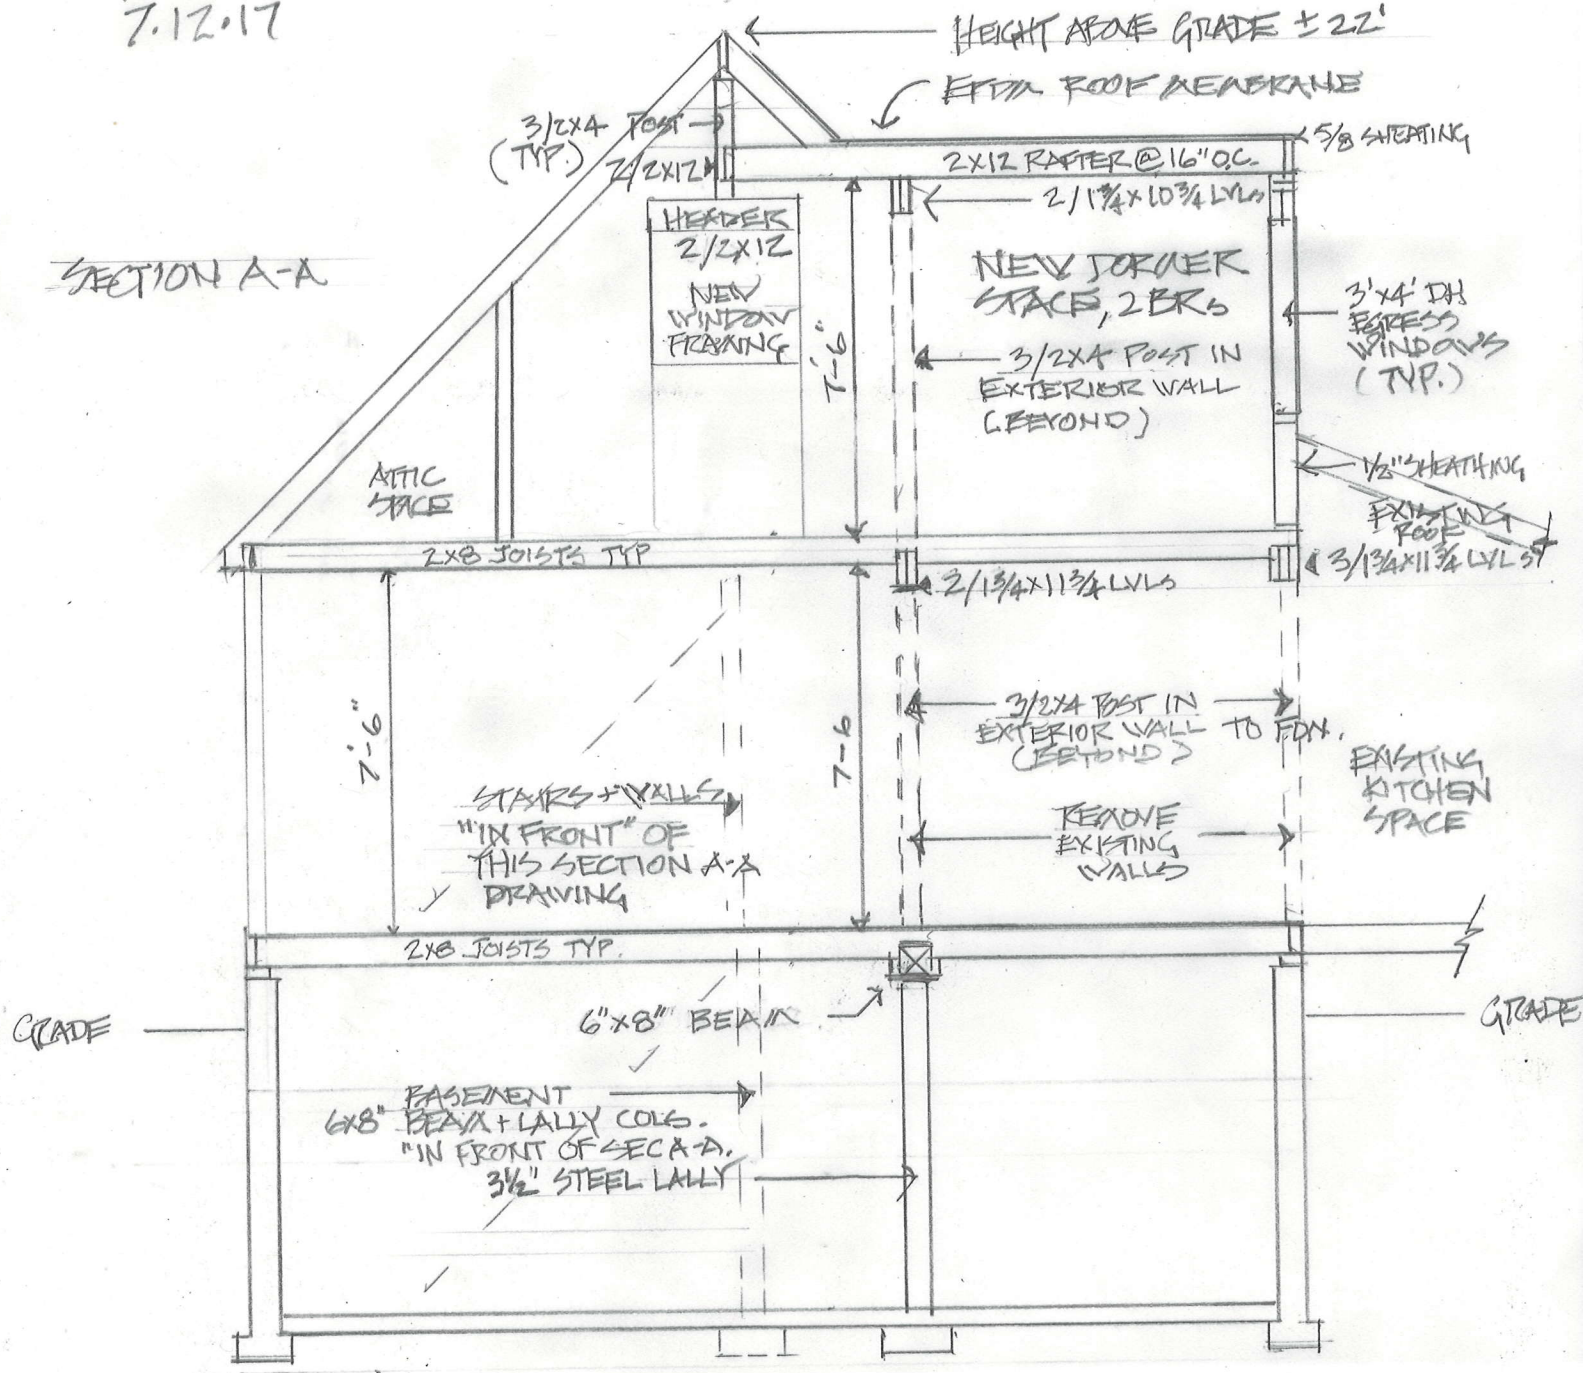 7.12.17
HEIGHT ABOVE GRADE ± 22'
EPDM ROOF MEMBRANE
3/2X4 POST
(TYP.)
2/2X12
5/8 SHEATING
2X12 RAFTER @ 16" O.C.
2/1 3/4 X 10 3/4 LVLs
HEADER
2/2X12
NEW
WINDOW
FRAMING
SECTION A-A
NEW DORMER
SPACE, 2 BRs
3'X4' DH
EGRESS
WINDOWS
(TYP.)
7'-6"
3/2X4 POST IN
EXTERIOR WALL
(BEYOND)
ATTIC
SPACE
1/2" SHEATHING
EXISTING
ROOF
2X8 JOISTS TYP
2/1 3/4 X 11 3/4 LVLs
3/1 3/4 X 11 3/4 LVLS
7'-6"
7-6
3/2X4 POST IN
EXTERIOR WALL TO FDN.
(BEYOND)
EXISTING
KITCHEN
SPACE
STAIRS + WALLS
"IN FRONT" OF
THIS SECTION A-A
DRAWING
REMOVE
EXISTING
WALLS
2X8 JOISTS TYP.
GRADE
6"X8" BEAM
GRADE
BASEMENT
6X8" BEAM + LALLY COLS.
"IN FRONT OF SEC A-A.
3 1/2" STEEL LALLY